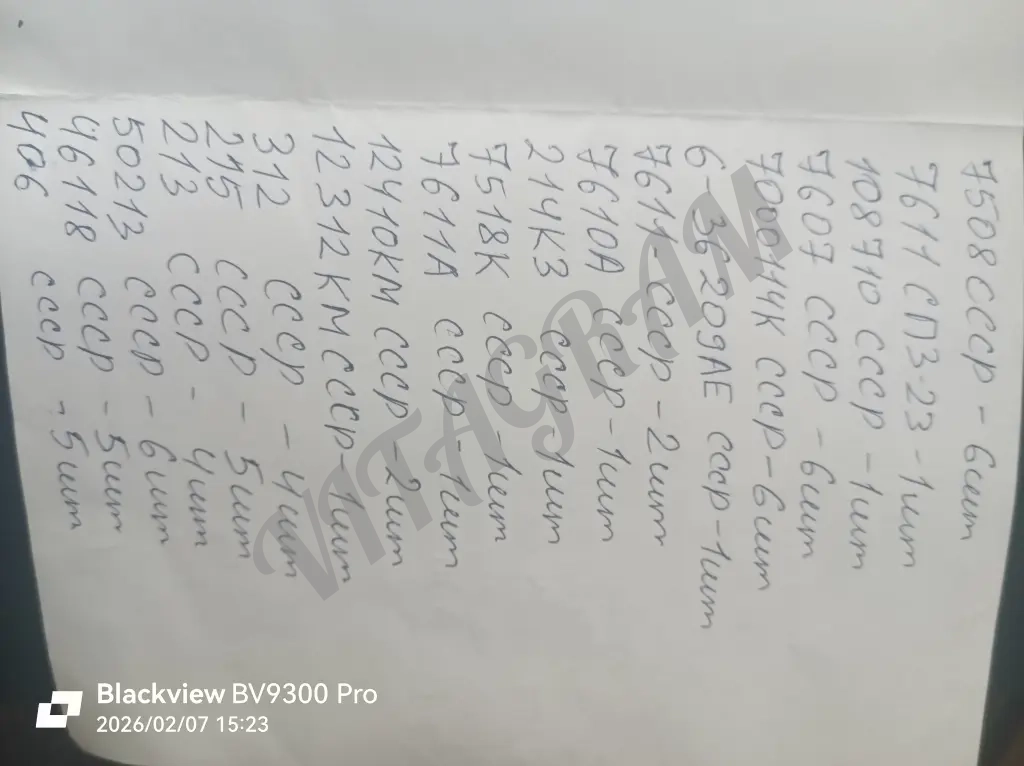 7508 СССР - 6шт
7611 СПЗ-23 - 1шт
108710 СССР - 1шт
7607 СССР - 6шт
7000114К СССР - 6шт
6-36209АЕ СССР - 1шт
7611 СССР - 2шт
7610А СССР - 1шт
214КЗ СССР 1шт
7518К СССР - 1шт
7611А СССР - 1шт
12410КМ СССР - 2шт
12312КМ СССР - 1шт
312 СССР - 4шт
215 СССР - 5шт
213 СССР - 4шт
50213 СССР - 6шт
46118 СССР - 5шт
406 СССР - 5шт
VITAGRAM
Blackview BV9300 Pro
2026/02/07 15:23